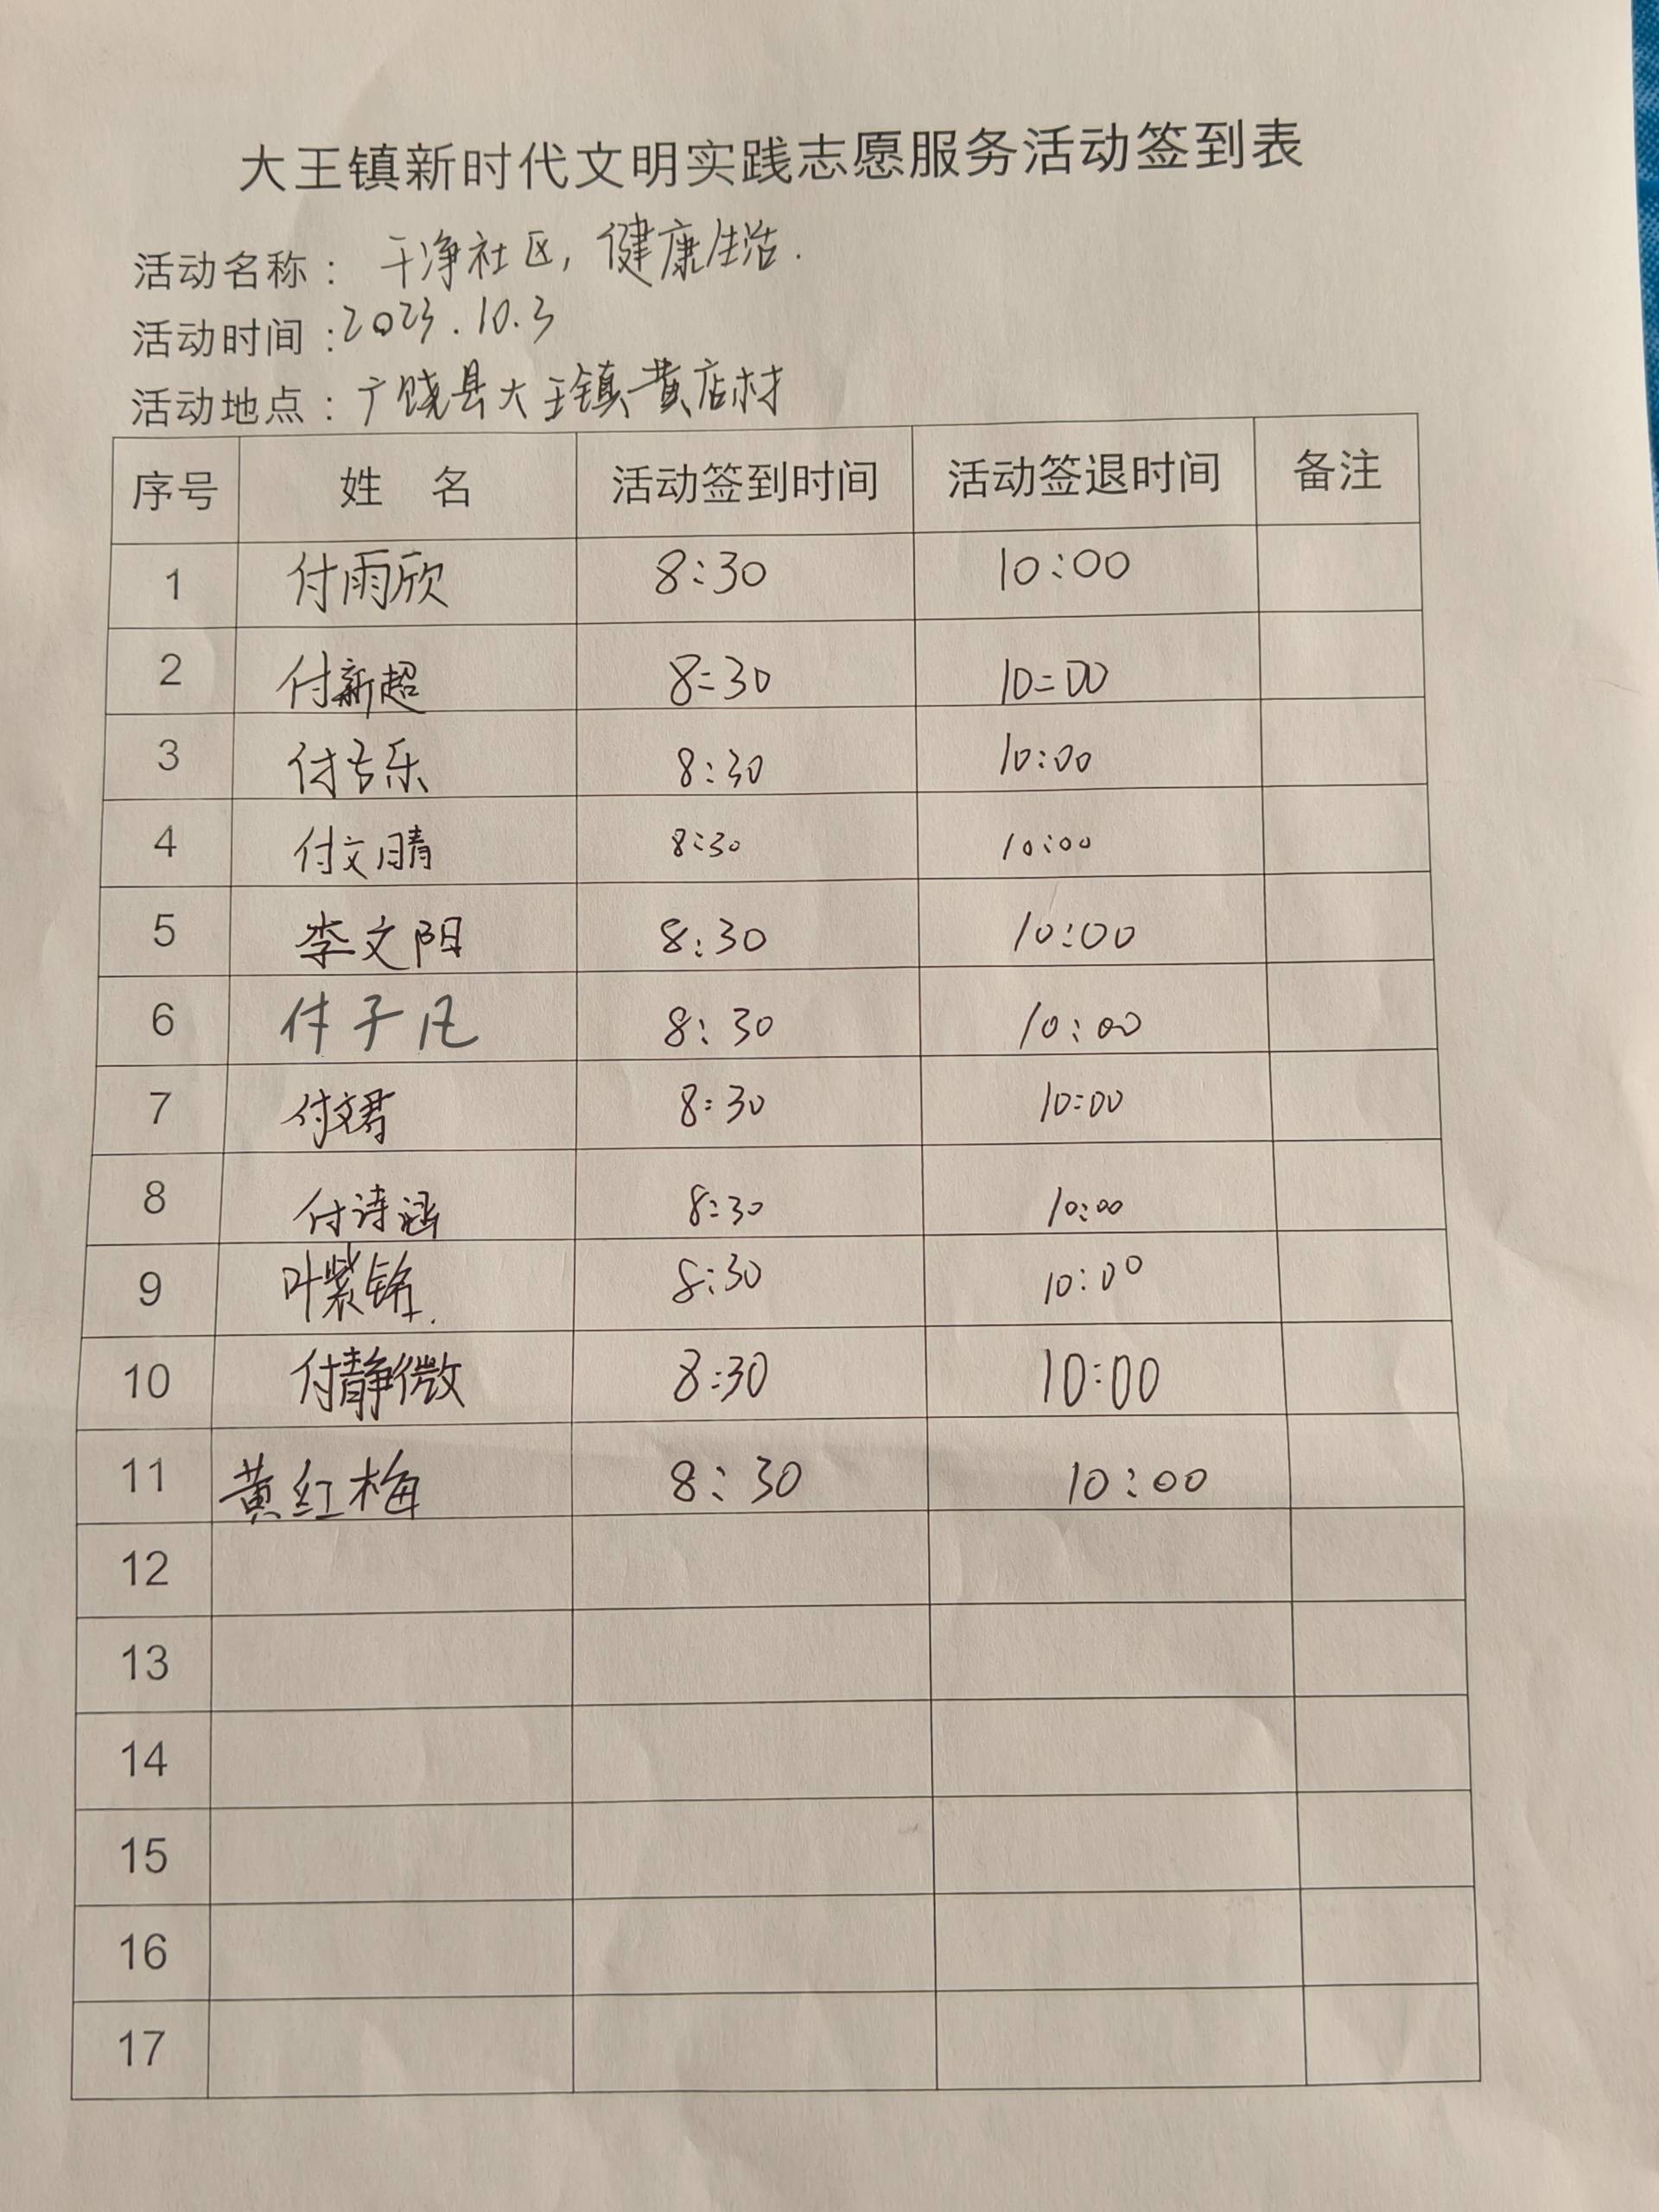 大王镇新时代文明实践志愿服务活动签到表
活动名称： 干净社区，健康生活.
活动时间：2023.10.3
活动地点：广饶县大王镇黄店村
序号 姓 名 活动签到时间 活动签退时间 备注
1 付雨欣 8:30 10:00
2 付新超 8:30 10:00
3 付 乐 8:30 10:00
4 付文晴 8:30 10:00
5 李文阳 8:30 10:00
6 付子凡 8:30 10:00
7 付文君 8:30 10:00
8 付诗涵 8:30 10:00
9 叶紫铭. 8:30 10:00
10 付静微 8:30 10:00
11 黄红梅 8:30 10:00
12
13
14
15
16
17